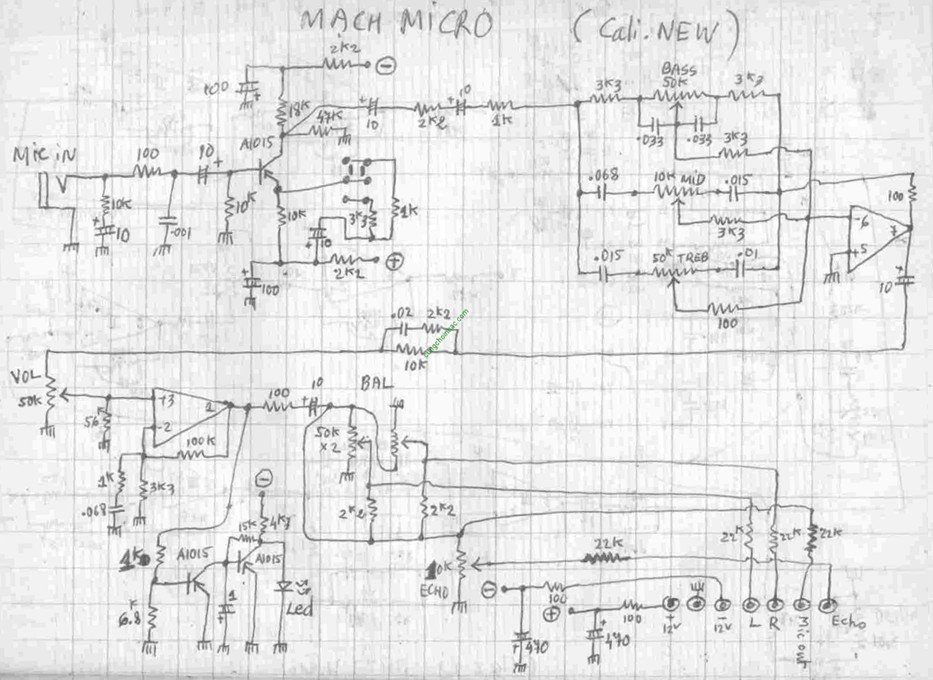 MACH MICRO (Cali.NEW)
2K2
100
18K
47K
10
2K2
10
1K
3K3
BASS
50K
3K3
.033
.033
3K3
A1015
Mic iN
100
10
10K
10
.001
10K
10K
3K3
1K
10
2K2
100
.068
10K MiD
.015
3K3
.015
50K TREB
.01
100
100
-6
+5
7
10
.02
2K2
10K
songchomac.com
VOL
50K
56K
+3
-2
1
100K
1K
3K3
.068
100
10
BAL
50K
x2
2K2
2K2
1K
6.8K
A1015
15K
4K7
A1015
1
Led
10K
ECHO
22K
22K
22K
22K
100
470
100
470
+
12V
-
12V
L
R
Mic out
Echo